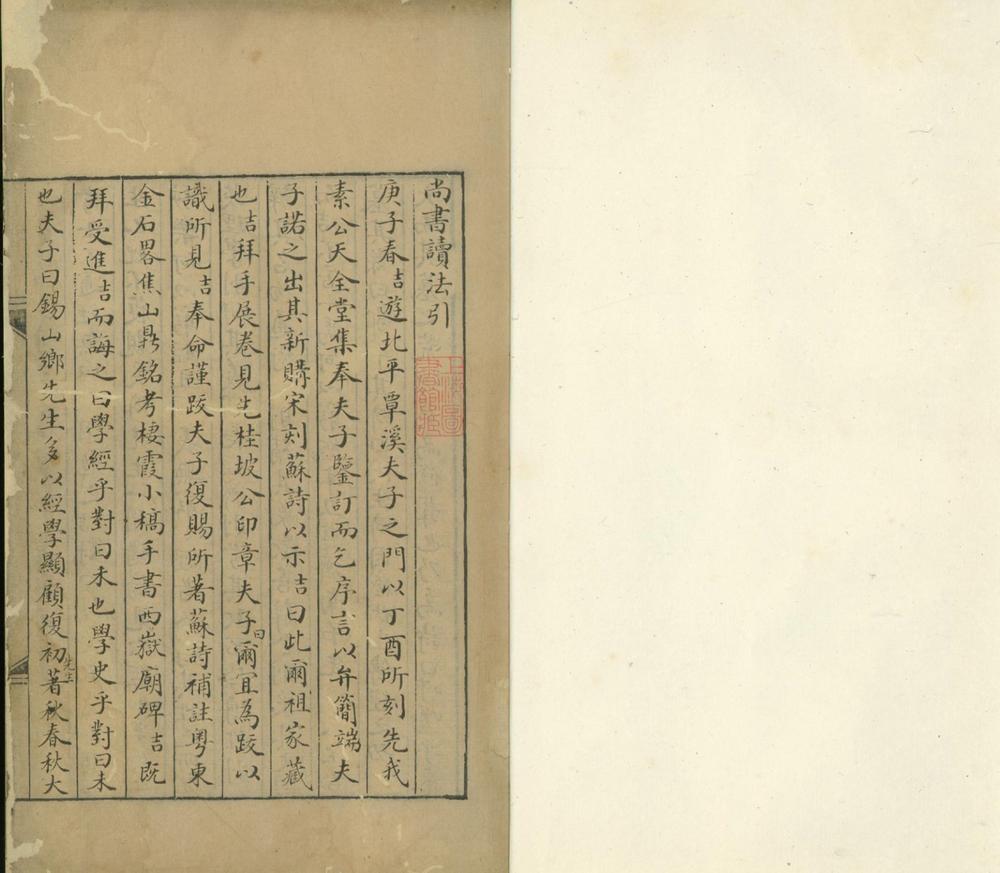 尚書讀法引
庚子春吉遊北平覃溪夫子之門以丁酉所刻先我
素公天全堂集奉夫子鑒訂而乞序言以弁簡端夫
子諾之出其新購宋刻蘇詩以示吉曰此爾祖家藏
也吉拜手展卷見先桂坡公印章夫子曰爾宜為跋以
識所見吉奉命謹跋夫子復賜所著蘇詩補註粵東
金石畧焦山鼎銘考棲霞小稿手書西嶽廟碑吉既
拜受進吉而誨之曰學經乎對曰未也學史乎對曰未
也夫子曰錫山鄉先生多以經學顯顧復初先生著秋春秋大
上海圖
書館藏